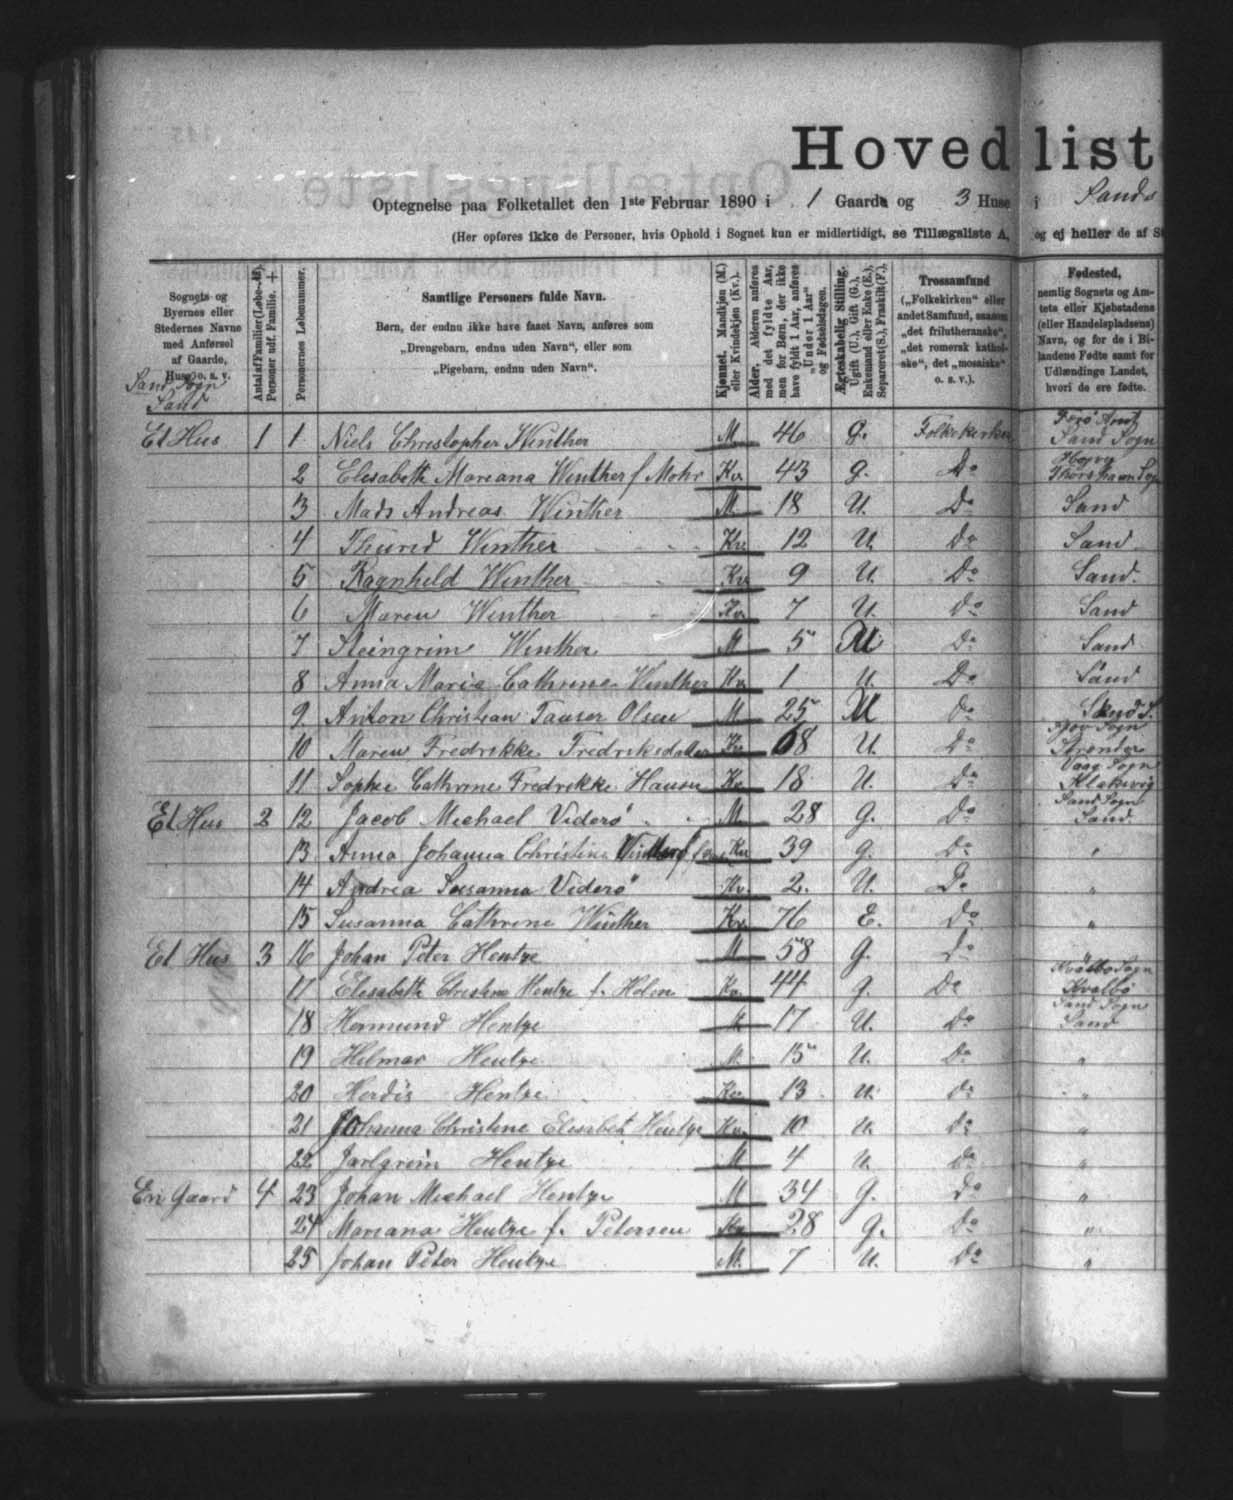 Hovedlist
Optegnelse paa Folketallet den 1ste Februar 1890 i 1 Gaarde og 3 Huse i Sands
(Her opføres ikke de Personer, hvis Ophold i Sognet kun er midlertidigt, se Tillægsliste A, og ej heller de af St
Sogneta og Byernes eller Stedernes Navne med Anførsel af Gaarde, Huse o. s. v.
Antal af Familier (Løbe-№). Personer udf. Familie. +
Personernes Løbenummer.
Samtlige Personers fulde Navn.
Børn, der endnu ikke have faaet Navn, anføres som
„Drengebarn, endnu uden Navn“, eller som
„Pigebarn, endnu uden Navn“.
Kjønnet. Mandkjøn (M.) eller Kvindekjøn (Kv.).
Alder. Alderen anføres med det fyldte Aar, men for Børn, der ikke have fyldt 1 Aar, anføres „Under 1 Aar“ og Fødselsdagen.
Ægteskabelig Stilling. Ugift (U.), Gift (G.), Enkemand eller Enke (E.), Separeret (S.), Fraskilt (F.).
Trossamfund
(„Folkekirken“ eller andet Samfund, saasom „det frilutheranske“, „det romersk katholske“, det „mosaiske“ o. s. v.).
Fødested,
nemlig Sognets og Amtets eller Kjøbstadens (eller Handelspladsens) Navn, og for de i Bilandene Fødte samt for Udlændinge Landet, hvori de ere fødte.
Sand Sogn
Sand
Et Hus 1 1 Niels Christopher Winther M. 46 g. Folkekirken Sand Sogn
2 Elisabeth Mariana Winther f Mohr Kv 43 g. Do Thorshavn
3 Mads Andreas Winther M. 18 U. Do Sand
4 Thurid Winther Kv. 12 U. Do Sand
5 Ragnhild Winther Kv 9 U. Do Sand.
6 Maren Winther Kv. 7 U. Do Sand
7 Steingrim Winther M 5 U Do Sand
8 Anna Maria Cathrine Winther Kv 1 U. Do Sand
9. Anton Christian Tauser Olsen M. 25 U Do
10 Maren Fredrikke Fredriksdatter Kv 68 U. Do
11 Sophie Cathrine Fredrikke Hansen Kv 18 U. Do Klaksvig
Et Hus 2 12 Jacob Michael Viderø M. 28 g. Do Sand Sogn Sand.
13 Anna Johanna Christine Kv 39 g. Do "
14 Andrea Susanna Viderø Kv. 2. U. Do "
15 Susanna Cathrine Winther Kv. 76 E. Do "
Et Hus 3 16 Johan Peter Hentze M 58 g. Do "
17 Elisabeth Christine Hentze f. Holm Kv. 44 g. Do Kvalbø Sogn Kvalbø
18 Hermund Hentze M 17 U. Do Sand Sogn Sand
19 Helmar Hentze M. 15 U. Do "
20 Herdis Hentze Kv. 13 U. Do "
21 Johanna Christine Elisabet Hentze Kv. 10 U. Do "
22 Jarlgrim Hentze M 4 U. Do "
En Gaard 4 23 Johan Michael Hentze M 34 g. Do "
24 Mariana Hentze f. Petersen Kv 28 g. Do "
25 Johan Peter Hentze M. 7 U. Do "